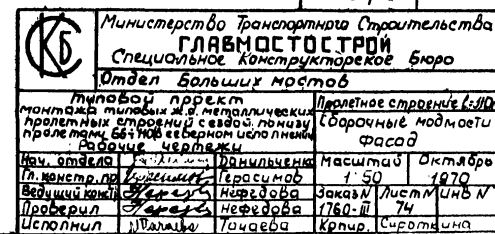 СКБ
Министерство Транспортного Строительства
ГЛАВМОСТОСТРОЙ
Специальное Конструкторское Бюро
Отдел Больших мостов
Типовой проект
монтажа типовых ж.д. металлических
пролетных строений с ездой понизу
пролетами 66÷110м в северном исполнении
Рабочие чертежи
Пролетное строение ℓ=110
Сборочные жодмости
Фасад
Нач. отдела Данильченко Масштаб Октябрь
Гл. констр. пр. Герасимов 1:50 1970
Ведущий констр. Нефедова Заказ N Лист N Инв N
Проверил Нефедова 1760-III 74
Исполнил Тачаева Копир. Сироткина